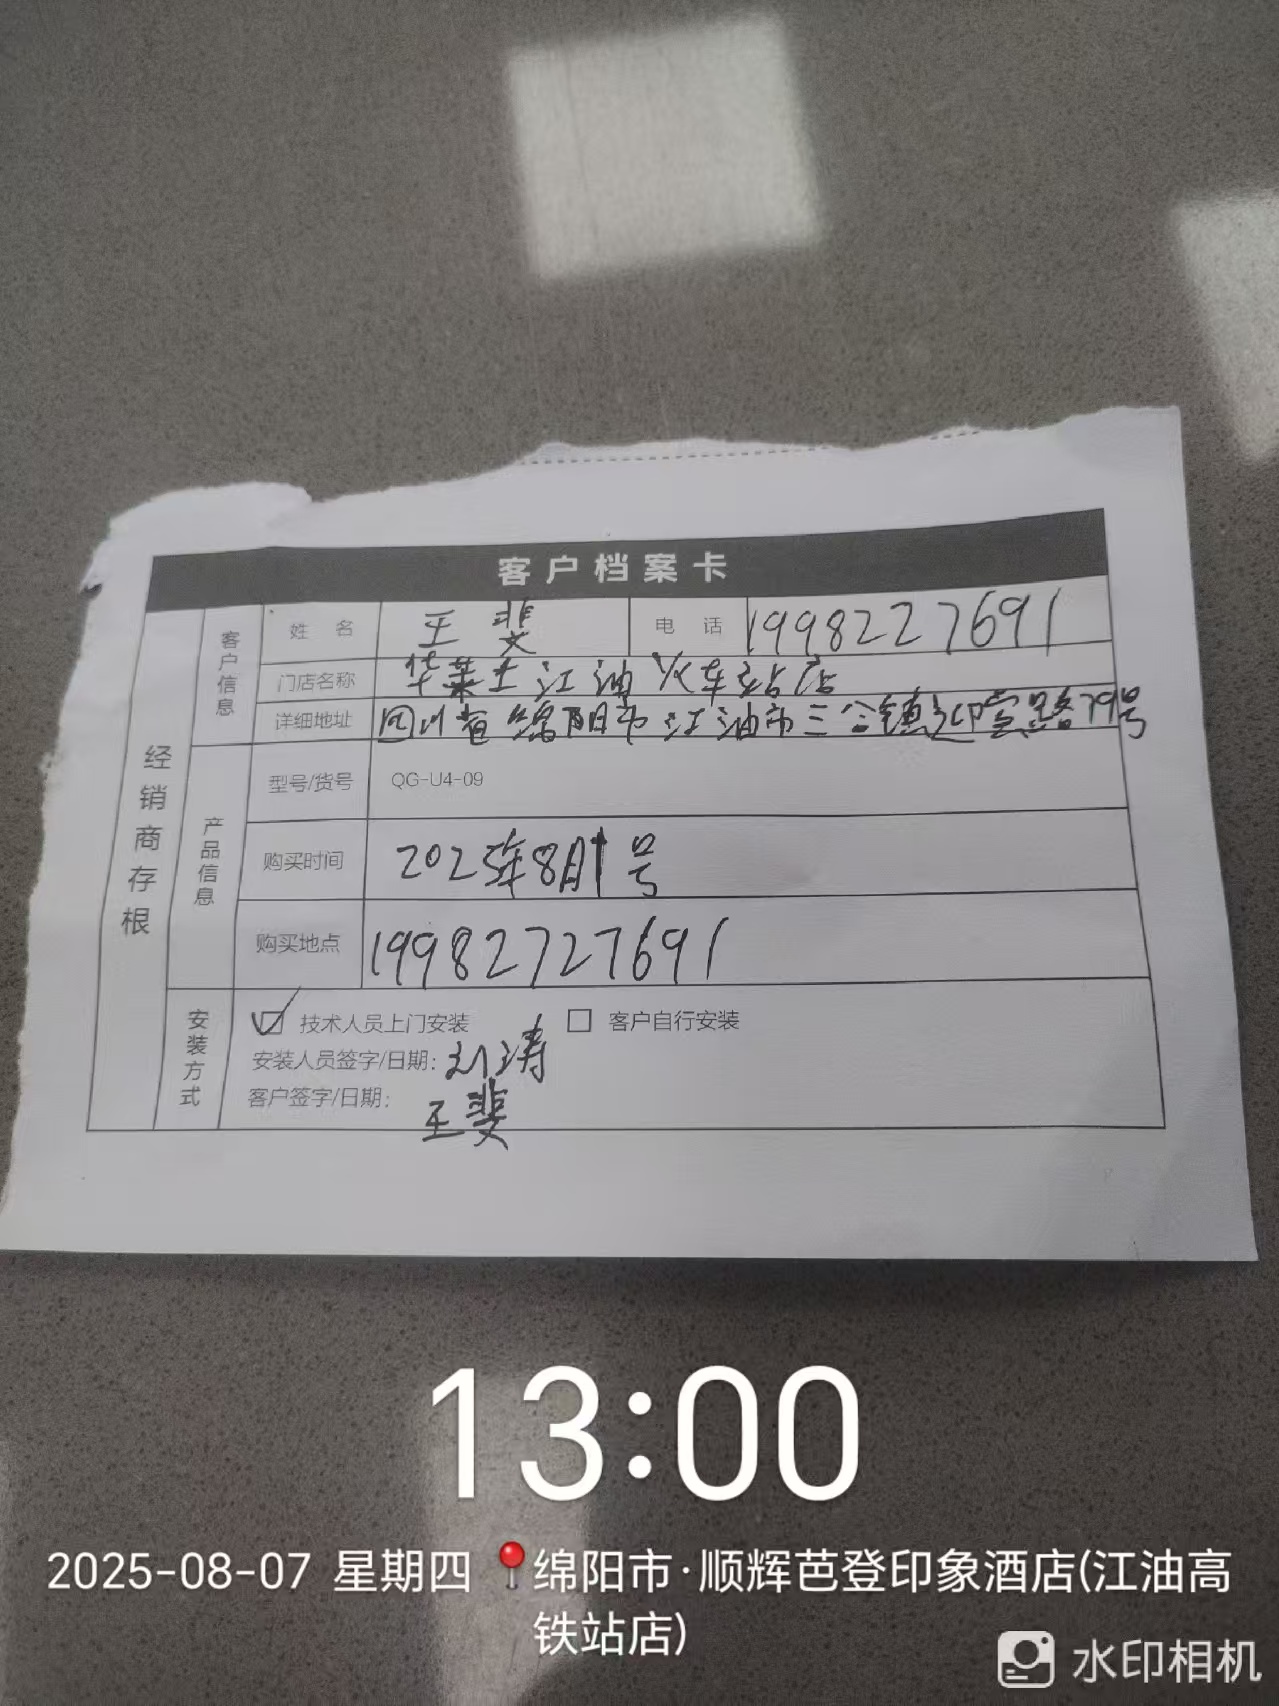 客户档案卡
经销商存根
客户信息
姓名 王斐 电话 19982727691
门店名称 华莱士江油火车站店
详细地址 四川省绵阳市江油市三合镇迎宾路79号
产品信息
型号/货号 QG-U4-09
购买时间 2025年8月1号
购买地点 19982727691
安装方式
☑ 技术人员上门安装 □ 客户自行安装
安装人员签字/日期: 刘涛
客户签字/日期: 王斐
13:00
2025-08-07 星期四 绵阳市·顺辉芭登印象酒店(江油高
铁站店)
水印相机